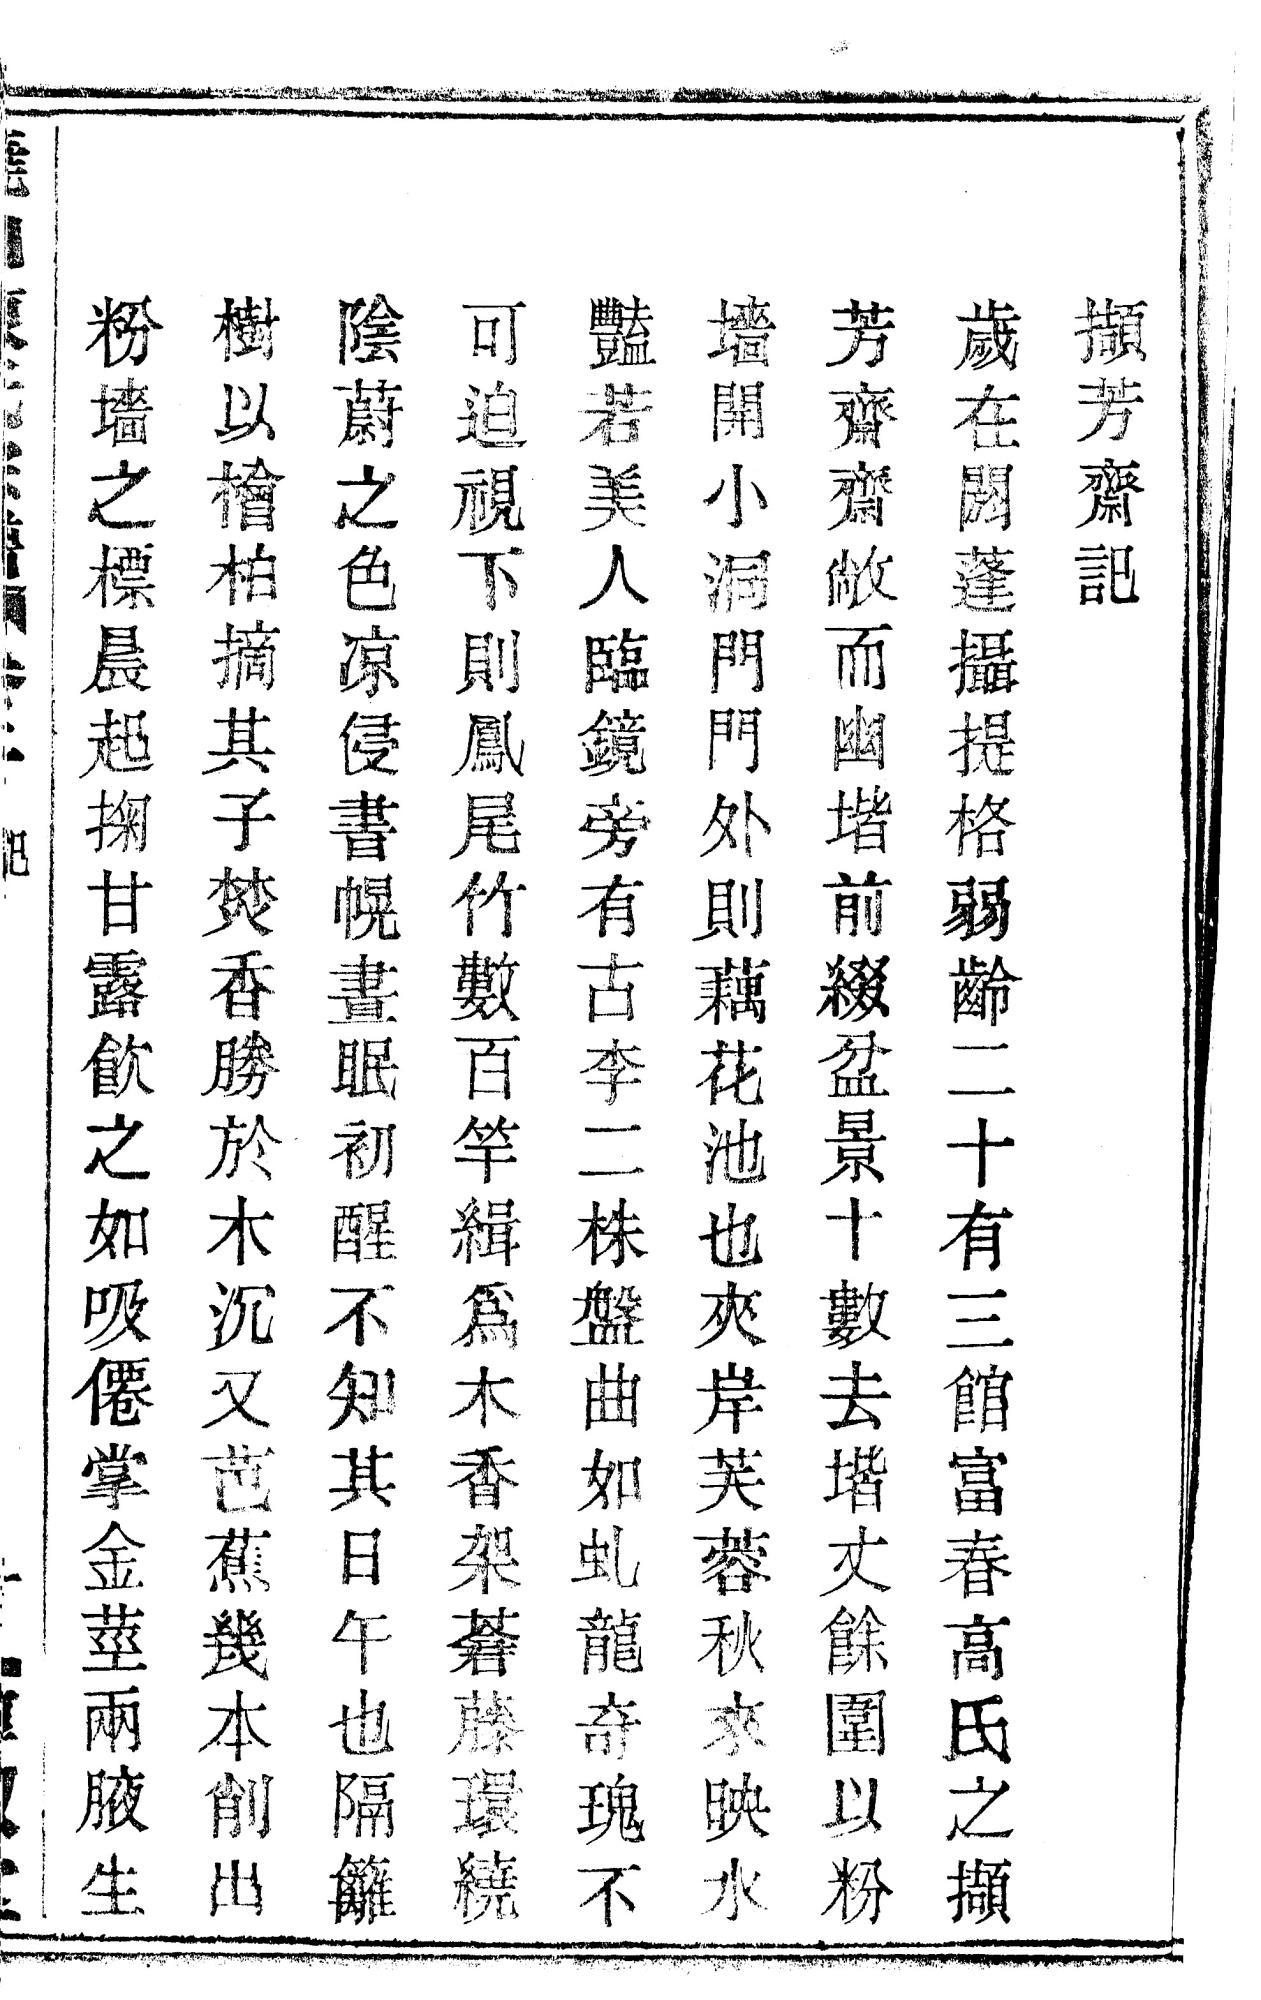 擷芳齋記
歲在閼蓬攝提格弱齡二十有三館富春高氏之擷
芳齋齋敞而幽堦前綴盆景十數去堦丈餘圍以粉
墻開小洞門門外則藕花池也夾岸芙蓉秋來映水
豔若美人臨鏡旁有古李二株盤曲如虬龍奇瑰不
可迫視下則鳳尾竹數百竿緝爲木香架蒼藤環繞
陰蔚之色凉侵書幌晝眠初醒不知其日午也隔籬
樹以檜柏摘其子焚香勝於木沉又芭蕉幾本削出
粉墻之標晨起掬甘露飮之如吸僊掌金莖兩腋生